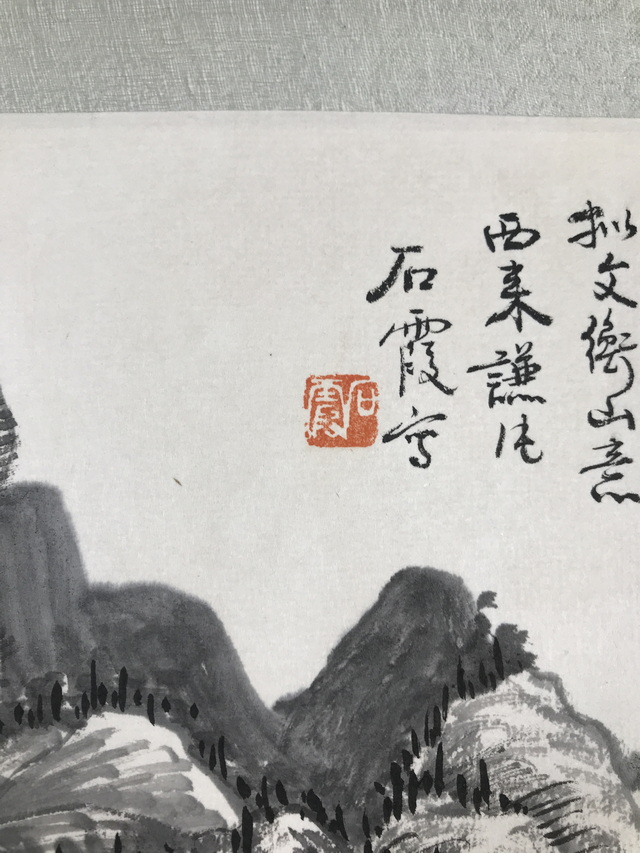 拟文衡山意
西来謙
石霞写
石霞